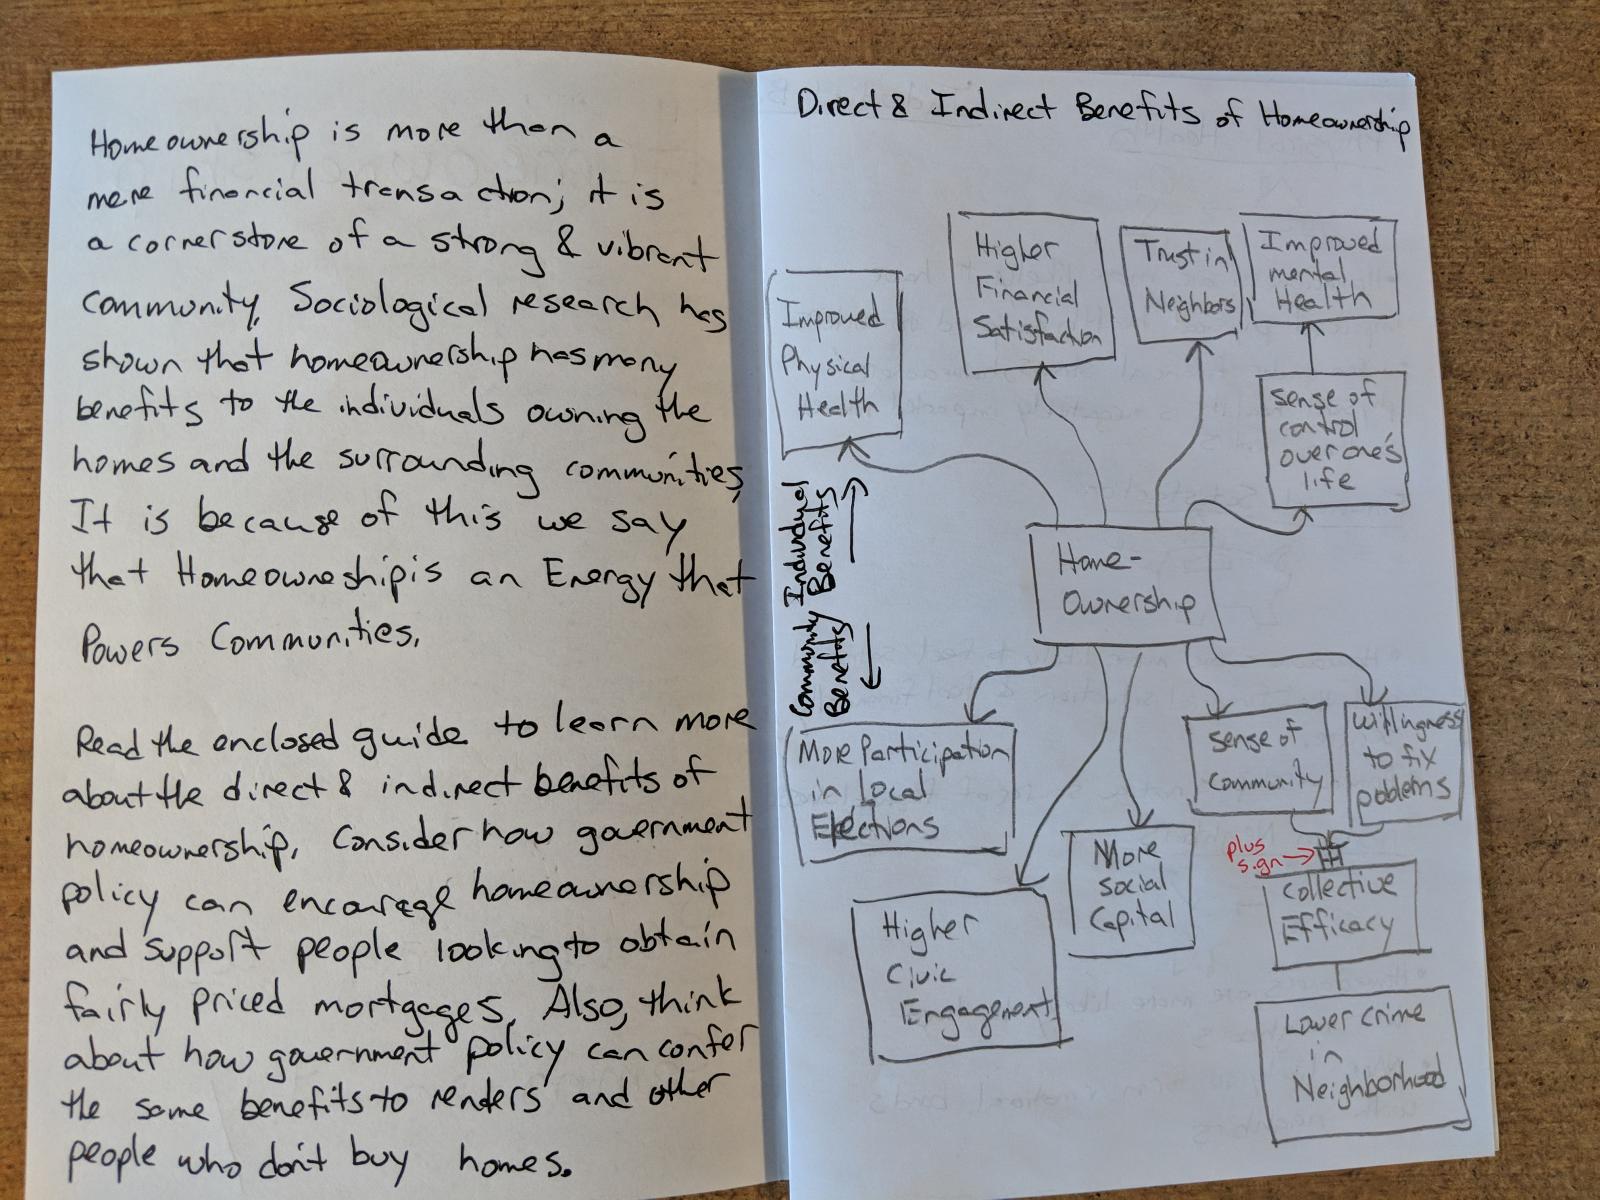 Homeownership is more than a
mere financial transaction; it is
a cornerstone of a strong & vibrant
community. Sociological research has
shown that homeownership has many
benefits to the individuals owning the
homes and the surrounding communities.
It is because of this we say
that Homeowneship is an Energy that
Powers Communities.
Read the enclosed guide to learn more
about the direct & indirect benefits of
homeownership. Consider how government
policy can encourage homeownership
and support people looking to obtain
fairly priced mortgages. Also, think
about how government policy can confer
the same benefits to renders and other
people who don't buy homes.
Direct & Indirect Benefits of Homeownership
Improved
Physical
Health
Higher
Financial
Satisfaction
Trust in
Neighbors
Improved
mental
Health
sense of
control
over one's
life
Individual
Benefits
Community
Benefits
Home-
Ownership
More Participation
in Local
Elections
Higher
Civic
Engagement
More
social
Capital
sense of
community
willingness
to fix
poblems
plus
sign
collective
Efficacy
Lower crime
in
Neighborhood